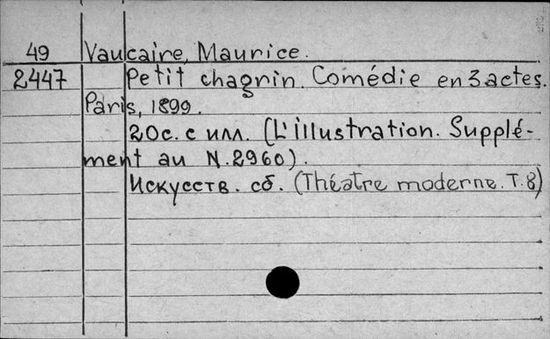 49 Vaucaire, Maurice.
2447 Petit chagrin. Comédie en 3 actes.
Paris, 1899.
20с. с илл. (L'illustration. Supplé-
ment au N.2960).
Искусств. сб. (Théatre moderne. T.8)